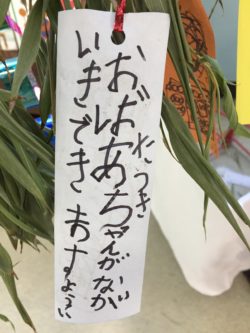 たつき
おばあちゃんがなが
いきできますように